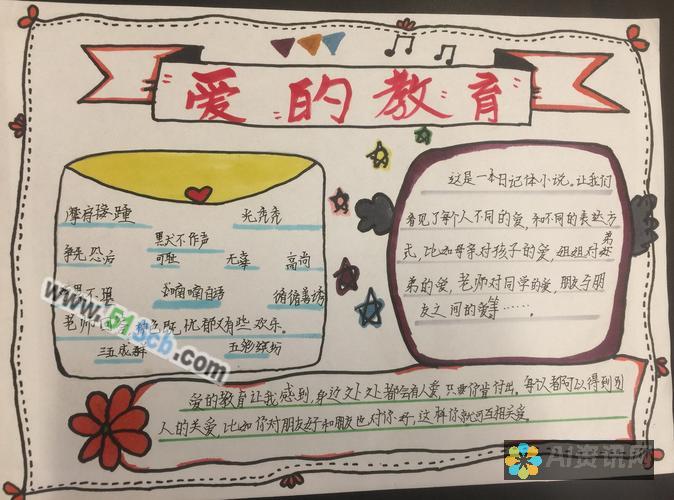 爱的教育
摩肩接踵 光秃秃
默不作声
争先恐后 可耻 无辜 高尚
喃喃自语 循循善诱
老师 既忧郁又有些欢乐。
三五成群 五彩缤纷
www.51scb.com
这是一本日记体小说。让我们
看见了每个人不同的爱,和不同的表达方
式,比如母亲对孩子的爱,姐姐对弟
弟的爱,老师对同学的爱,朋友与朋
友之间的爱等……。
爱的教育让我感到,身边处处都会有人爱,只要你肯付出。每次都可以得到别
人的关爱,比如你对朋友好和朋友也对你好,这样你就可互相关爱。
AI资讯网